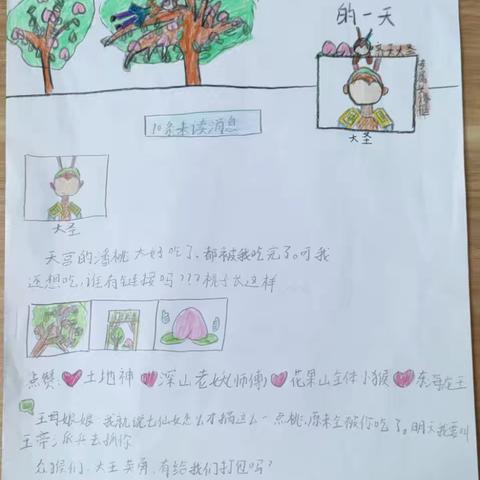 的一天
齐天大圣
大圣
10条未读消息
大圣
天宫的潘桃太好吃了，都被我吃完了。可我
还想吃，谁有链接吗???桃子长这样
点赞：土地神 深山老妖(师傅) 花果山全体小猴 东海龙王
王母娘娘：我就说七仙女怎么才摘这么一点桃，原来全被你吃了。明天我要叫
玉帝 去抓你
众猴们：大王英勇，有给我们打包吗？